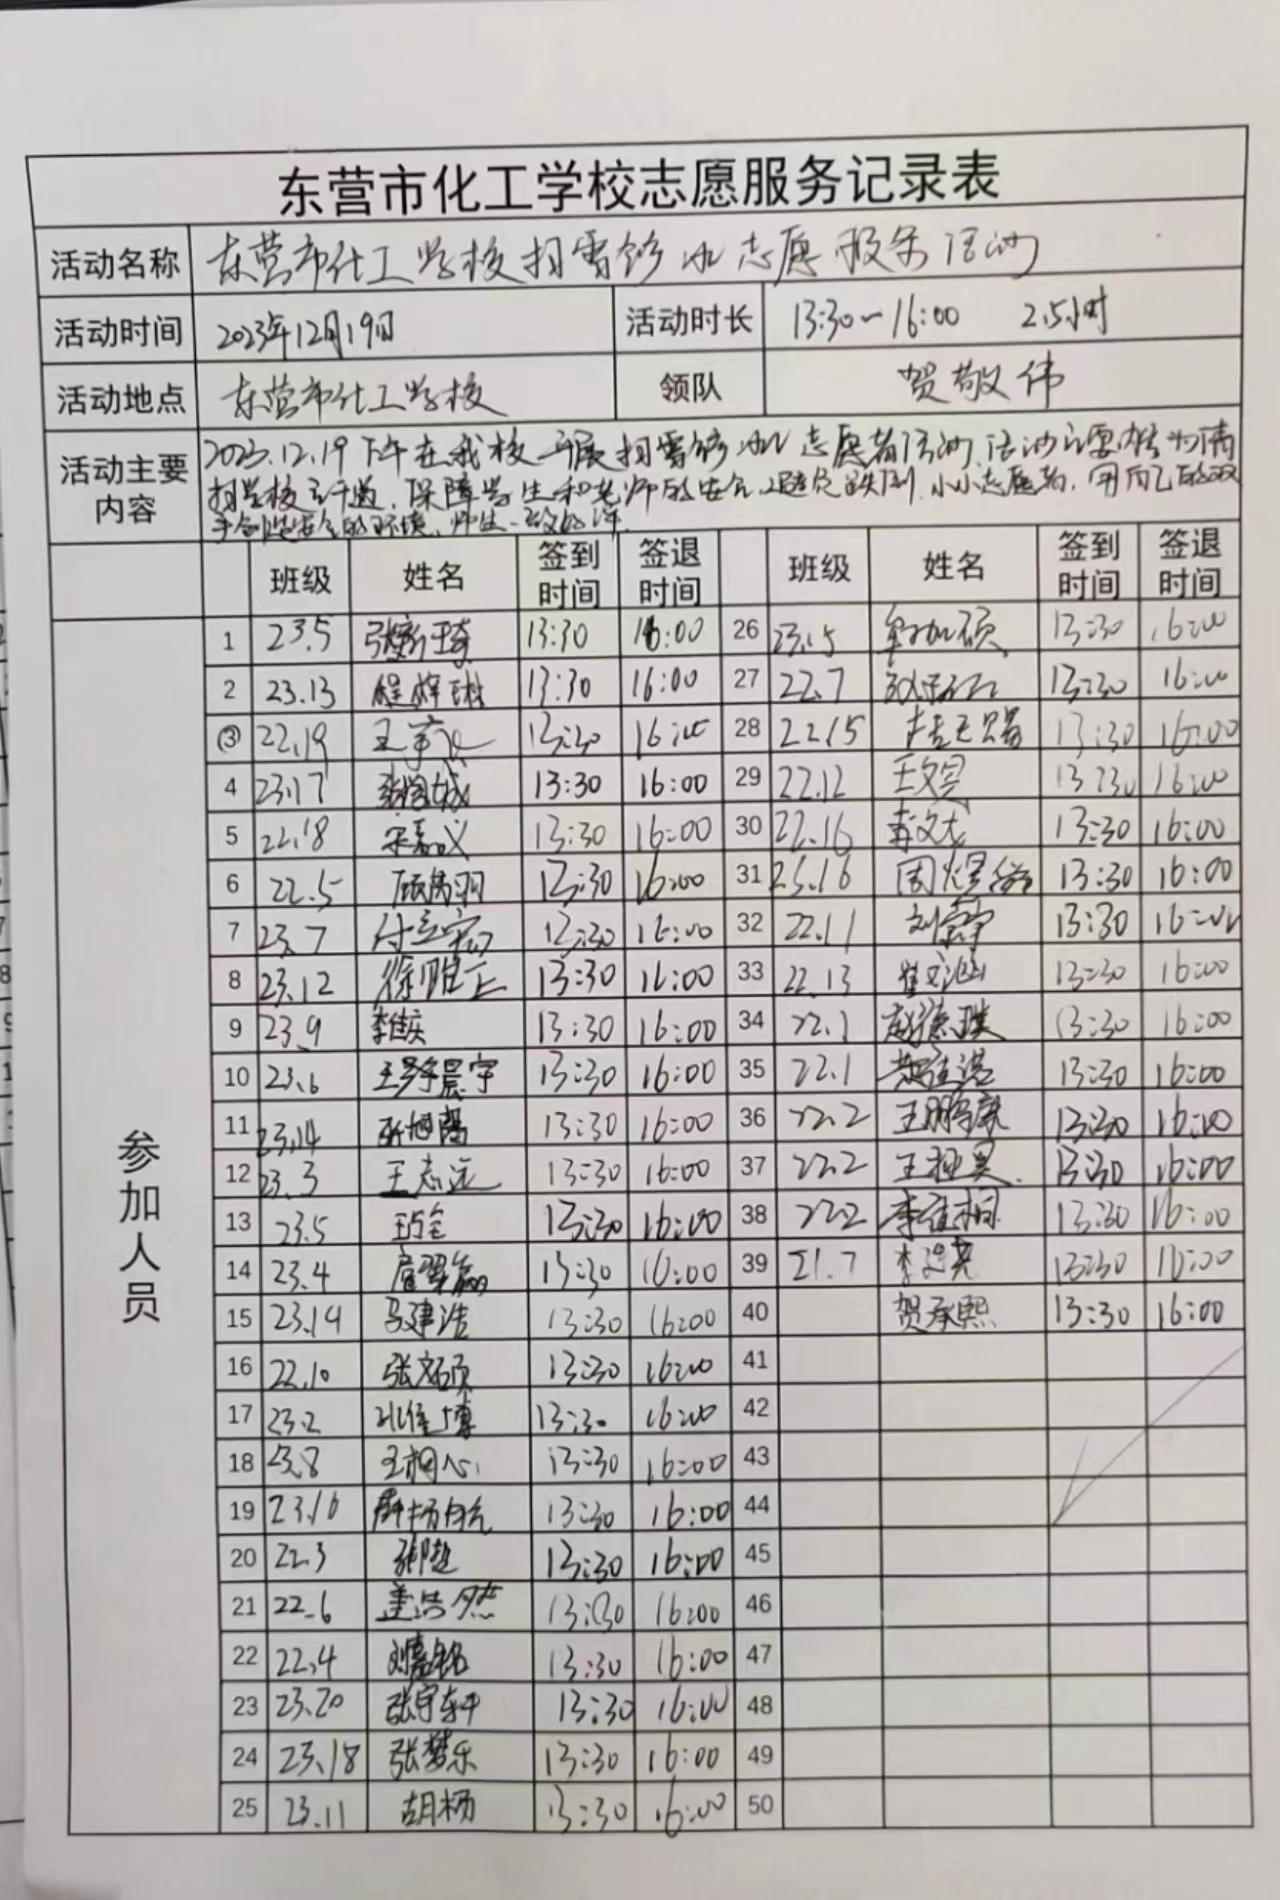 东营市化工学校志愿服务记录表
活动名称 东营市化工学校扫雪铲冰志愿服务活动
活动时间 2023年12月19日 活动时长 13:30~16:00 2.5小时
活动地点 东营市化工学校 领队 贺敬伟
活动主要内容 2023.12.19下午在我校开展扫雪铲冰志愿者活动,活动主要内容为清
扫学校主干道,保障学生和老师的安全,避免跌倒,小小志愿者,用自己的双
手创造安全的环境,师生一致好评.
班级 姓名 签到时间 签退时间 班级 姓名 签到时间 签退时间
参加人员
1 23.5 16:00 26 23.15 13:30 16:00
2 23.13 程梓琳 13:30 16:00 27 22.7 13:30 16:00
3 22.19 13:30 16:00 28 22.15 13:30 16:00
4 23.17 13:30 16:00 29 22.12 王文昊 13:30 16:00
5 22.18 宋嘉义 13:30 16:00 30 22.16 李文龙 13:30 16:00
6 22.5 13:30 16:00 31 23.16 13:30 16:00
7 23.7 付立宏 13:30 16:00 32 22.11 13:30 16:00
8 23.12 13:30 16:00 33 22.13 崔文涵 13:30 16:00
9 23.9 13:30 16:00 34 22.1 13:30 16:00
10 23.6 13:30 16:00 35 22.1 13:30 16:00
11 23.14 13:30 16:00 36 22.2 王鹏康 13:30 16:00
12 23.3 王志远 13:30 16:00 37 22.2 13:30 16:00
13 23.5 13:30 16:00 38 22.2 李佳桐 13:30 16:00
14 23.4 13:30 16:00 39 21.7 13:30 16:00
15 23.19 马建浩 13:30 16:00 40 贺承熙 13:30 16:00
16 22.10 张文硕 13:30 16:00 41
17 23.2 孔佳博 13:30 16:00 42
18 23.8 王桐心 13:30 16:00 43
19 23.10 13:30 16:00 44
20 22.3 13:30 16:00 45
21 22.6 盖浩然 13:30 16:00 46
22 22.4 刘嘉铭 13:30 16:00 47
23 23.20 张宇轩 13:30 16:00 48
24 23.18 张梦乐 13:30 16:00 49
25 23.11 胡杨 13:30 16:00 50